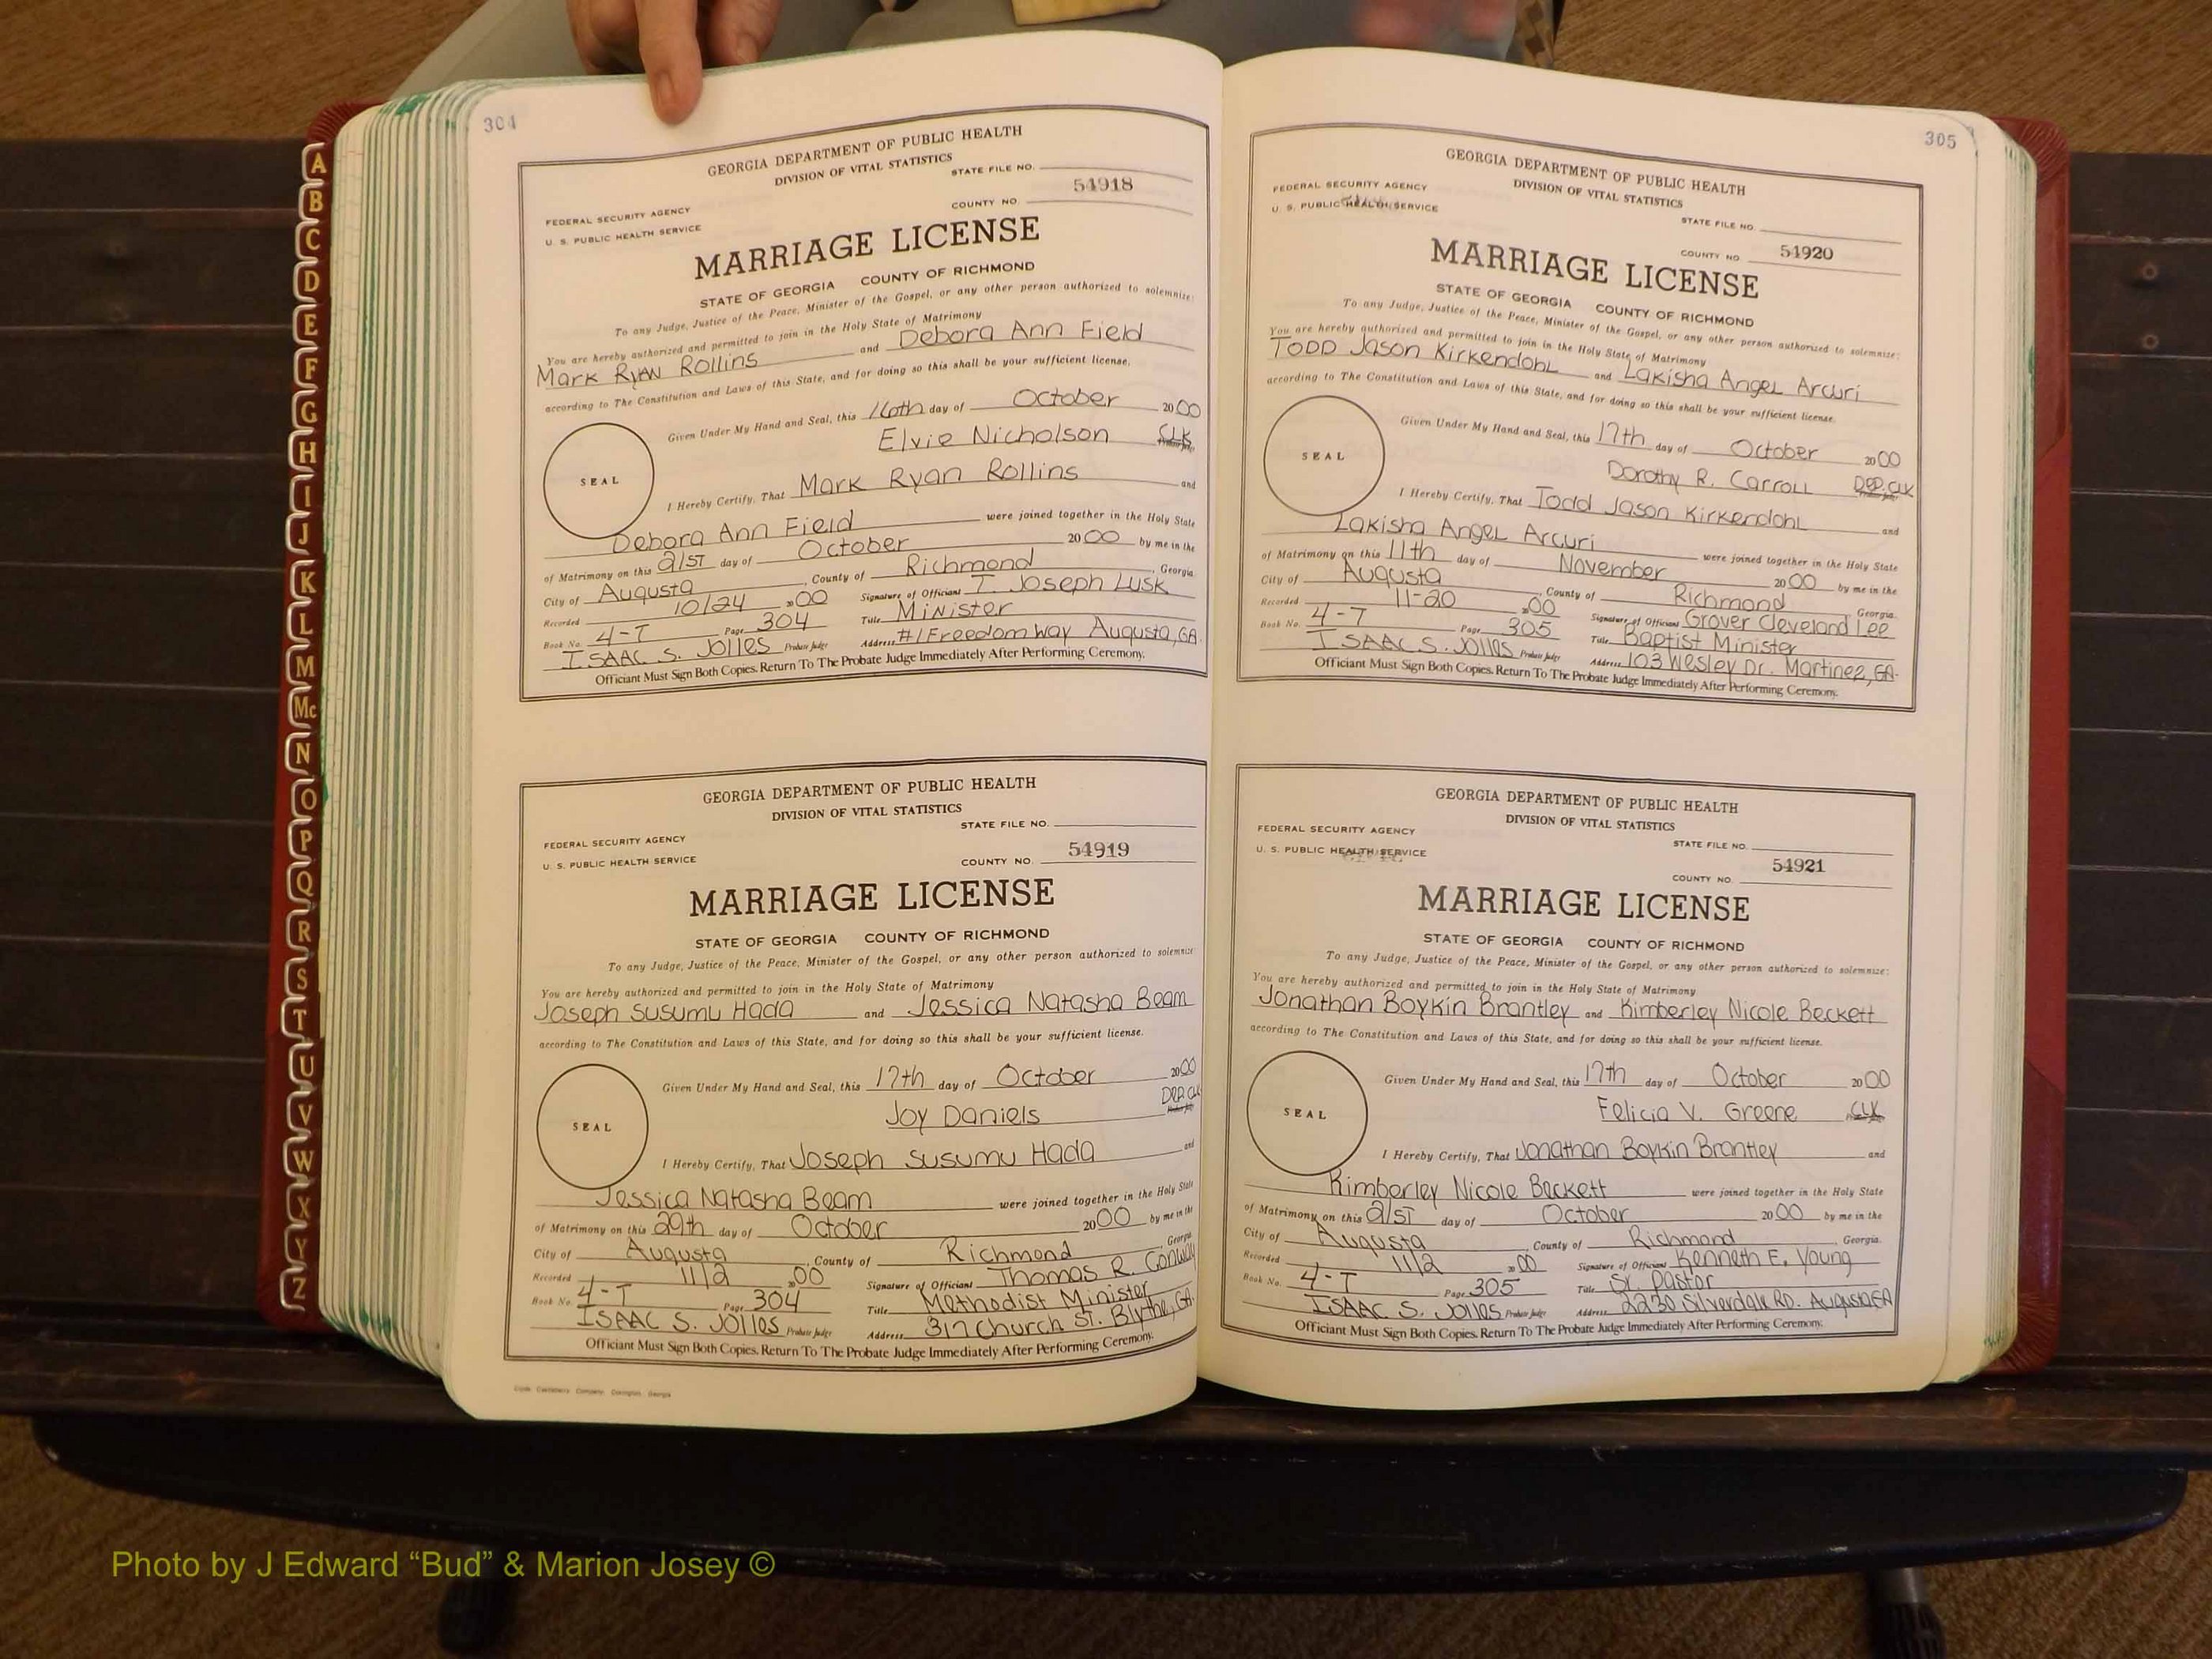 304
GEORGIA DEPARTMENT OF PUBLIC HEALTH
DIVISION OF VITAL STATISTICS
STATE FILE NO.
54918
FEDERAL SECURITY AGENCY
COUNTY NO.
U. S. PUBLIC HEALTH SERVICE
MARRIAGE LICENSE
STATE OF GEORGIA COUNTY OF RICHMOND
To any Judge, Justice of the Peace, Minister of the Gospel, or any other person authorized to solemnize:
You are hereby authorized and permitted to join in the Holy State of Matrimony
Mark Ryan Rollins and Debora Ann Field
according to The Constitution and Laws of this State, and for doing so this shall be your sufficient license.
Given Under My Hand and Seal, this 16th day of October 2000
Elvie Nicholson CLK
SEAL
I Hereby Certify, That Mark Ryan Rollins and
Debora Ann Field were joined together in the Holy State
of Matrimony on this 21ST day of October 2000 by me in the
City of Augusta, County of Richmond, Georgia
Recorded 10/24 2000 Signature of Officiant T. Joseph Lusk
Book No. 4-T Page 304 Title Minister
ISAAC S. Jolles Probate Judge Address #1 Freedom Way Augusta, GA.
Officiant Must Sign Both Copies. Return To The Probate Judge Immediately After Performing Ceremony.
GEORGIA DEPARTMENT OF PUBLIC HEALTH
DIVISION OF VITAL STATISTICS
STATE FILE NO.
FEDERAL SECURITY AGENCY
54919
U. S. PUBLIC HEALTH SERVICE COUNTY NO.
MARRIAGE LICENSE
STATE OF GEORGIA COUNTY OF RICHMOND
To any Judge, Justice of the Peace, Minister of the Gospel, or any other person authorized to solemnize:
You are hereby authorized and permitted to join in the Holy State of Matrimony
Joseph Susumu Hada and Jessica Natasha Beam
according to The Constitution and Laws of this State, and for doing so this shall be your sufficient license.
Given Under My Hand and Seal, this 17th day of October 2000
Joy Daniels DEP. CLK
SEAL
I Hereby Certify, That Joseph Susumu Hada and
Jessica Natasha Beam were joined together in the Holy State
of Matrimony on this 29th day of October 2000 by me in the
City of Augusta, County of Richmond Georgia
Recorded 11/2 2000 Signature of Officiant Thomas R. Conway
Book No. 4-T Page 304 Title Methodist Minister
ISAAC S. Jolles Probate Judge Address 317 Church St. Blythe, GA.
Officiant Must Sign Both Copies. Return To The Probate Judge Immediately After Performing Ceremony.
305
GEORGIA DEPARTMENT OF PUBLIC HEALTH
DIVISION OF VITAL STATISTICS
FEDERAL SECURITY AGENCY
U. S. PUBLIC HEALTH SERVICE
STATE FILE NO.
COUNTY NO 54920
MARRIAGE LICENSE
STATE OF GEORGIA COUNTY OF RICHMOND
To any Judge, Justice of the Peace, Minister of the Gospel, or any other person authorized to solemnize:
You are hereby authorized and permitted to join in the Holy State of Matrimony
TODD Jason Kirkendohl and Lakisha Angel Arcuri
according to The Constitution and Laws of this State, and for doing so this shall be your sufficient license.
Given Under My Hand and Seal, this 17th day of October 2000
Dorothy R. Carroll DEP. CLK
SEAL
I Hereby Certify, That Todd Jason Kirkendohl and
Lakisha Angel Arcuri were joined together in the Holy State
of Matrimony on this 11th day of November 2000 by me in the
City of Augusta, County of Richmond, Georgia.
Recorded 11-20 2000 Signature of Officiant Grover Cleveland Lee
Book No. 4-T Page 305 Title Baptist Minister
ISAAC S. Jolles Probate Judge Address 103 Wesley Dr. Martinez, GA.
Officiant Must Sign Both Copies. Return To The Probate Judge Immediately After Performing Ceremony.
GEORGIA DEPARTMENT OF PUBLIC HEALTH
DIVISION OF VITAL STATISTICS
FEDERAL SECURITY AGENCY
STATE FILE NO.
U. S. PUBLIC HEALTH SERVICE
54921
COUNTY NO.
MARRIAGE LICENSE
STATE OF GEORGIA COUNTY OF RICHMOND
To any Judge, Justice of the Peace, Minister of the Gospel, or any other person authorized to solemnize:
You are hereby authorized and permitted to join in the Holy State of Matrimony
Jonathan Boykin Brantley and Kimberley Nicole Beckett
according to The Constitution and Laws of this State, and for doing so this shall be your sufficient license.
Given Under My Hand and Seal, this 17th day of October 2000
Felicia V. Greene CLK
SEAL
I Hereby Certify, That Jonathan Boykin Brantley and
Kimberley Nicole Beckett were joined together in the Holy State
of Matrimony on this 21ST day of October 2000 by me in the
City of Augusta, County of Richmond, Georgia.
Recorded 11/2 2000 Signature of Officiant Kenneth E. Young
Book No. 4-T Page 305 Title Sr. Pastor
ISAAC S. Jolles Probate Judge Address 2230 Silverdale RD. Augusta GA
Officiant Must Sign Both Copies. Return To The Probate Judge Immediately After Performing Ceremony.
A
B
C
D
E
F
G
H
I
J
K
L
M
Mc
N
O
P
Q
R
S
T
U
V
W
X
Y
Z
Photo by J Edward “Bud” & Marion Josey ©